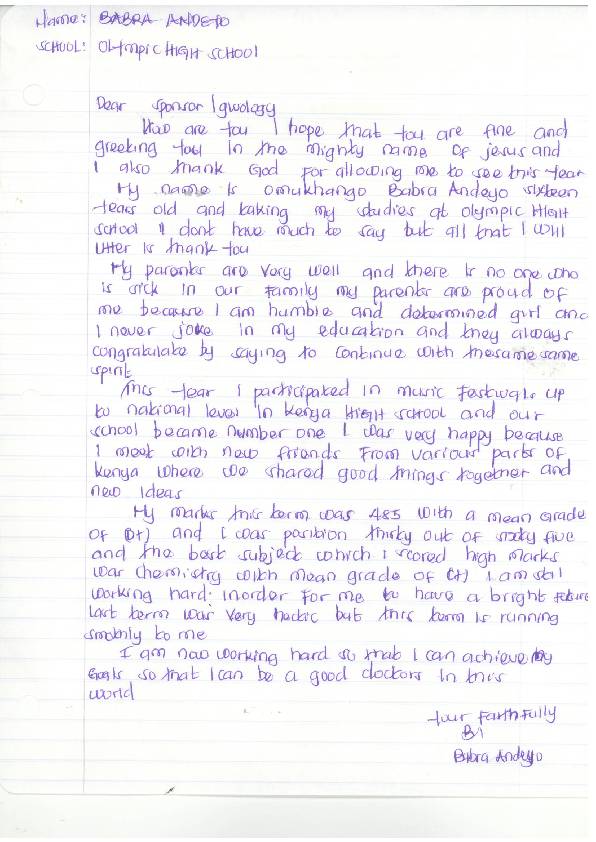 Name: BABRA ANDEYO
SCHOOL: OLYMPIC HIGH SCHOOL
Dear sponsor Igwology
How are you I hope that you are fine and
greeking you in the mighty name of jesus and
I also thank God for allowing me to see this year
My name is omukhango Babra Andeyo sixteen
years old and taking my studies at olympic High
school I dont have much to say but all that I will
utter is thank you
My parents are very well and there is no one who
is sick in our family my parents are proud of
me because I am humble and determined girl and
I never joke in my education and they always
congratulate by saying to continue with thesame same
spirit
This year I participated in music festivals up
to national level in Kenya High school and our
school became number one I was very happy because
I meet with new friends from various parts of
Kenya where we shared good things together and
new ideas
My marks this term was 485 with a mean grade
of D+) and I was position thirty out of sixty five
and the best subject which I scored high marks
was chemistry with mean grade of C+) I am still
working hard: inorder for me to have a bright future
Last term was very hectic but this term is running
smothly to me
I am now working hard so that I can achieve my
Goals so that I can be a good doctors in this
world
your Faithfully
BA
Babra Andeyo